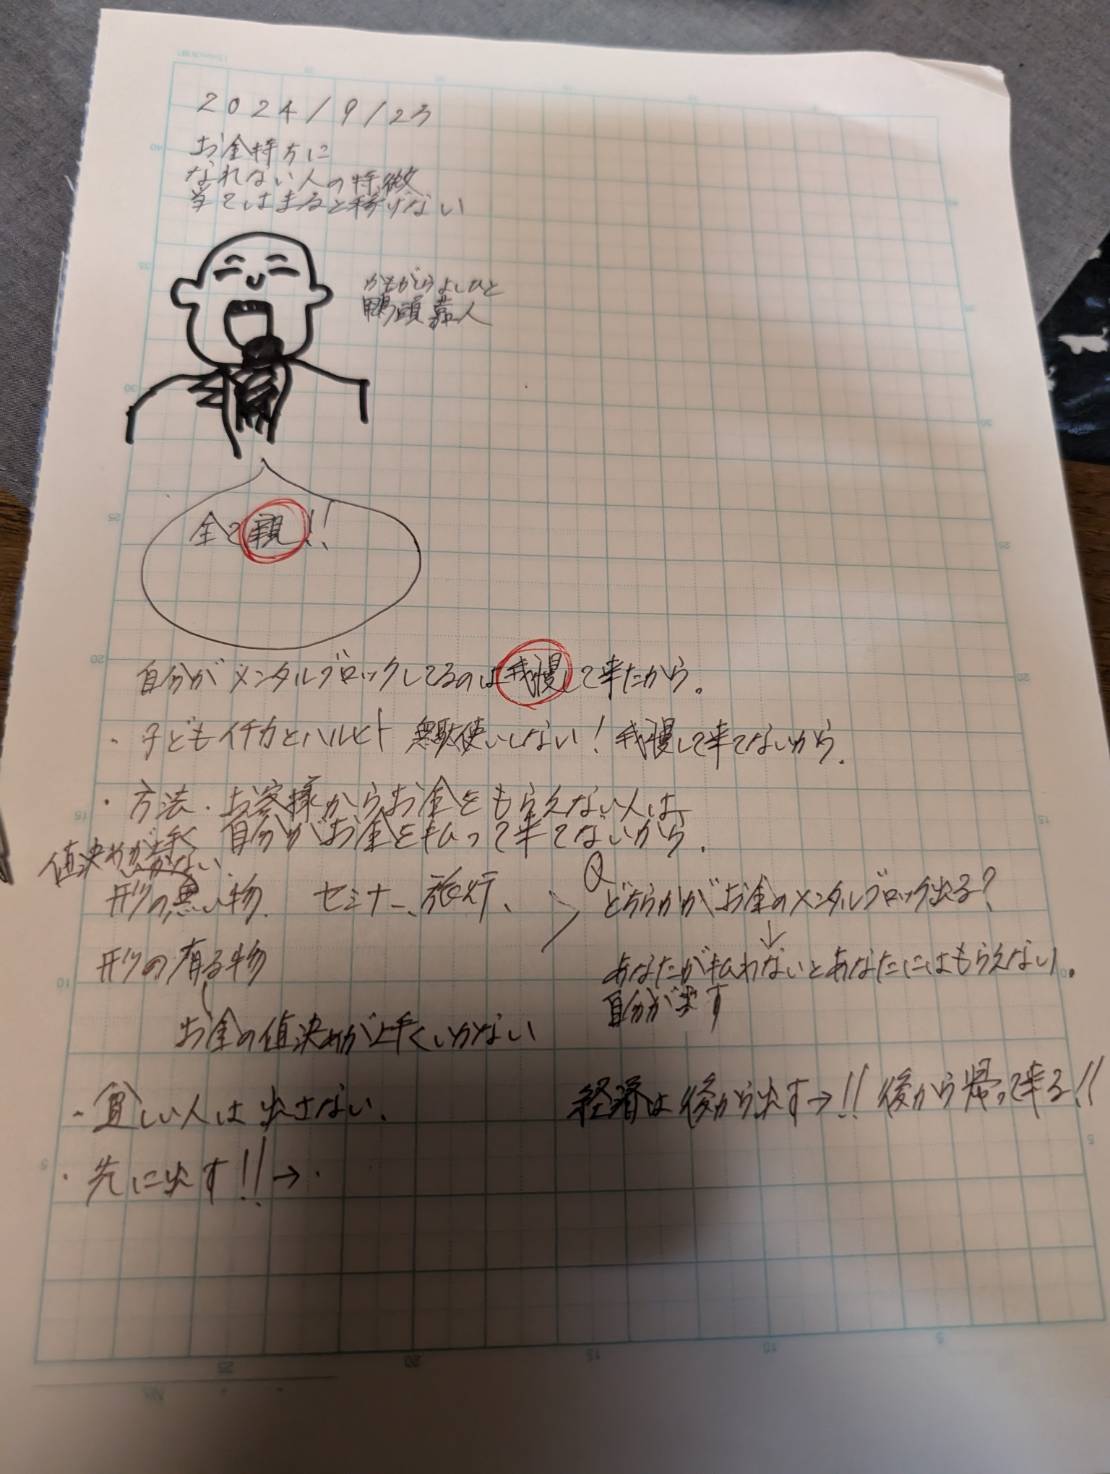 2024/9/23
お金持ちに
なれない人の特徴
当てはまると稼げない
かもがしらよしひと
鴨頭嘉人
全て親!!
自分がメンタルブロックしてるのは我慢して来たから。
・子どもイチカとハルヒト 無駄使いしない!我慢して来てないから。
・方法・お客様からお金をもらえない人は、
自分がお金を払って来てないから。
値決めが上手く
いかない
形の無い物、セミナー、旅行、
Q
どちらかがお金のメンタルブロック出る?
↓
形の有る物
あなたが払わないとあなたにはもらえない。
自分が出す
お金の値決めが上手くいかない
・貧しい人は出さない。
経済は後から出す→!!後から帰って来る!!
・先に出す!!→・